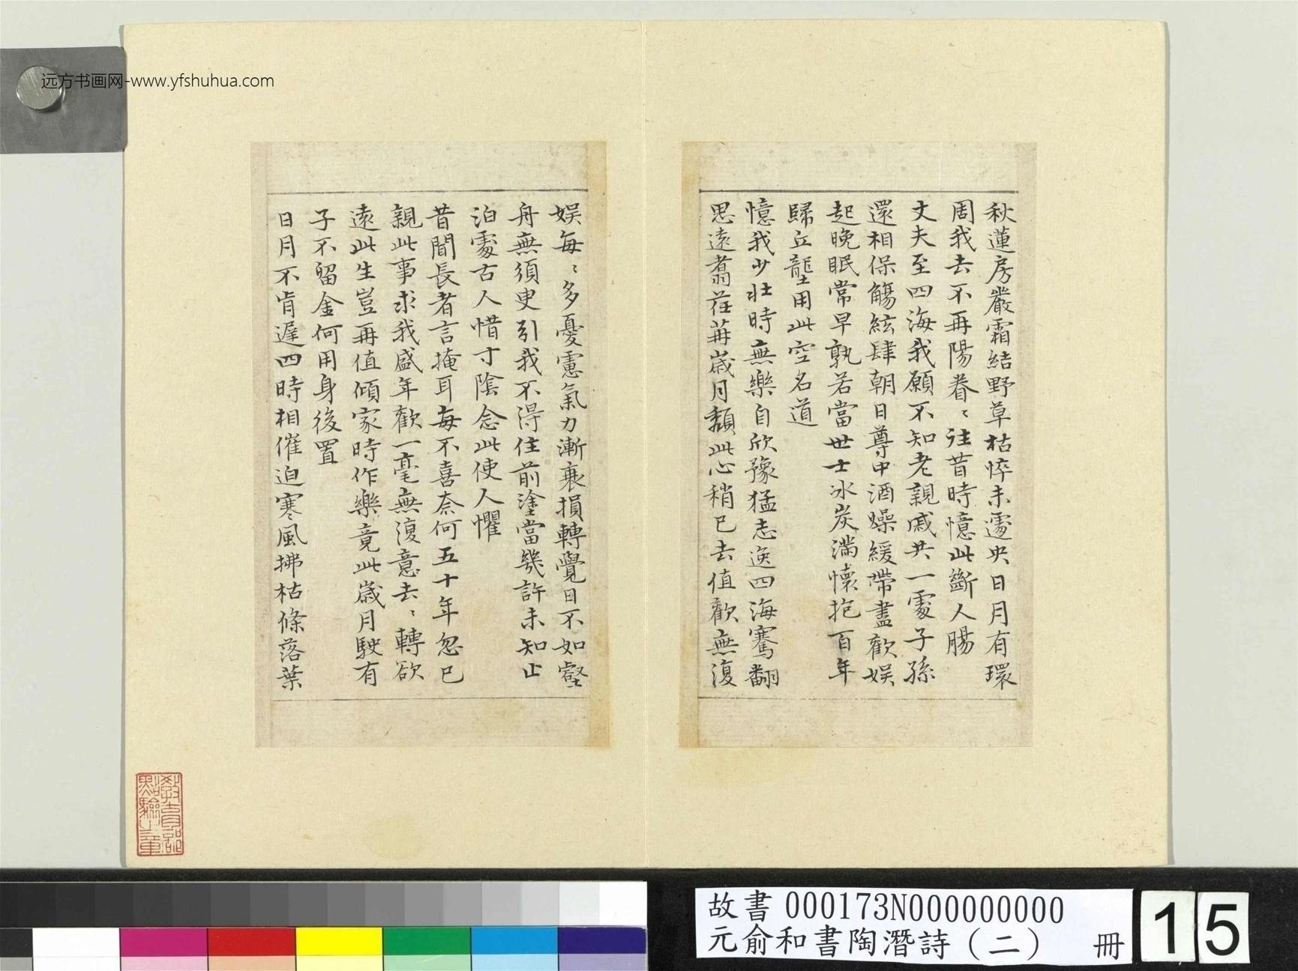 远方书画网-www.yfshuhua.com
秋蓮房嚴霜結野草枯悴未遽央日月有環
周我去不再陽眷〻往昔時憶此斷人腸
丈夫至四海我願不知老親戚共一處子孫
還相保觴絃肆朝日尊中酒燥緩帶盡歡娛
起晚眠常早孰若當世士冰炭滿懷抱百年
歸丘壟用此空名道
憶我少壯時無樂自欣豫猛志逸四海騫翮
思遠翥荏苒歲月頹此心稍已去值歡無復
娱每〻多憂慮氣力漸衰損轉覺日不如壑
舟無須臾引我不得住前塗當幾許未知止
泊處古人惜寸陰念此使人懼
昔聞長者言掩耳每不喜奈何五十年忽已
親此事求我盛年歡一毫無復意去〻轉欲
遠此生豈再值傾家時作樂竟此歲月駛有
子不留金何用身後置
日月不肯遲四時相催迫寒風拂枯條落葉
故書 000173N000000000
元俞和書陶潛詩（二） 冊
15